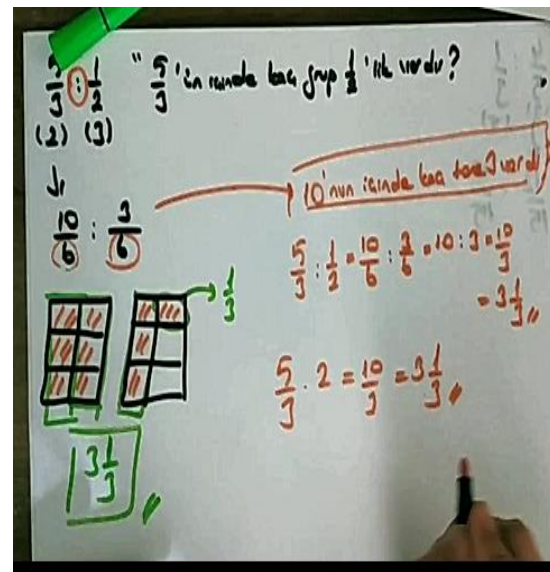 5/3 : 1/2 " 5/3 'in içinde kaç grup 1/2 'lik vardır?
(2) (3)
↓
10/6 : 3/6 → 10'nun içinde kaç tane 3 vardır
5/3 : 1/2 = 10/6 : 3/6 = 10 : 3 = 10/3
= 3 1/3 //
→ 1/3
5/3 . 2 = 10/3 = 3 1/3 //
3 1/3 //